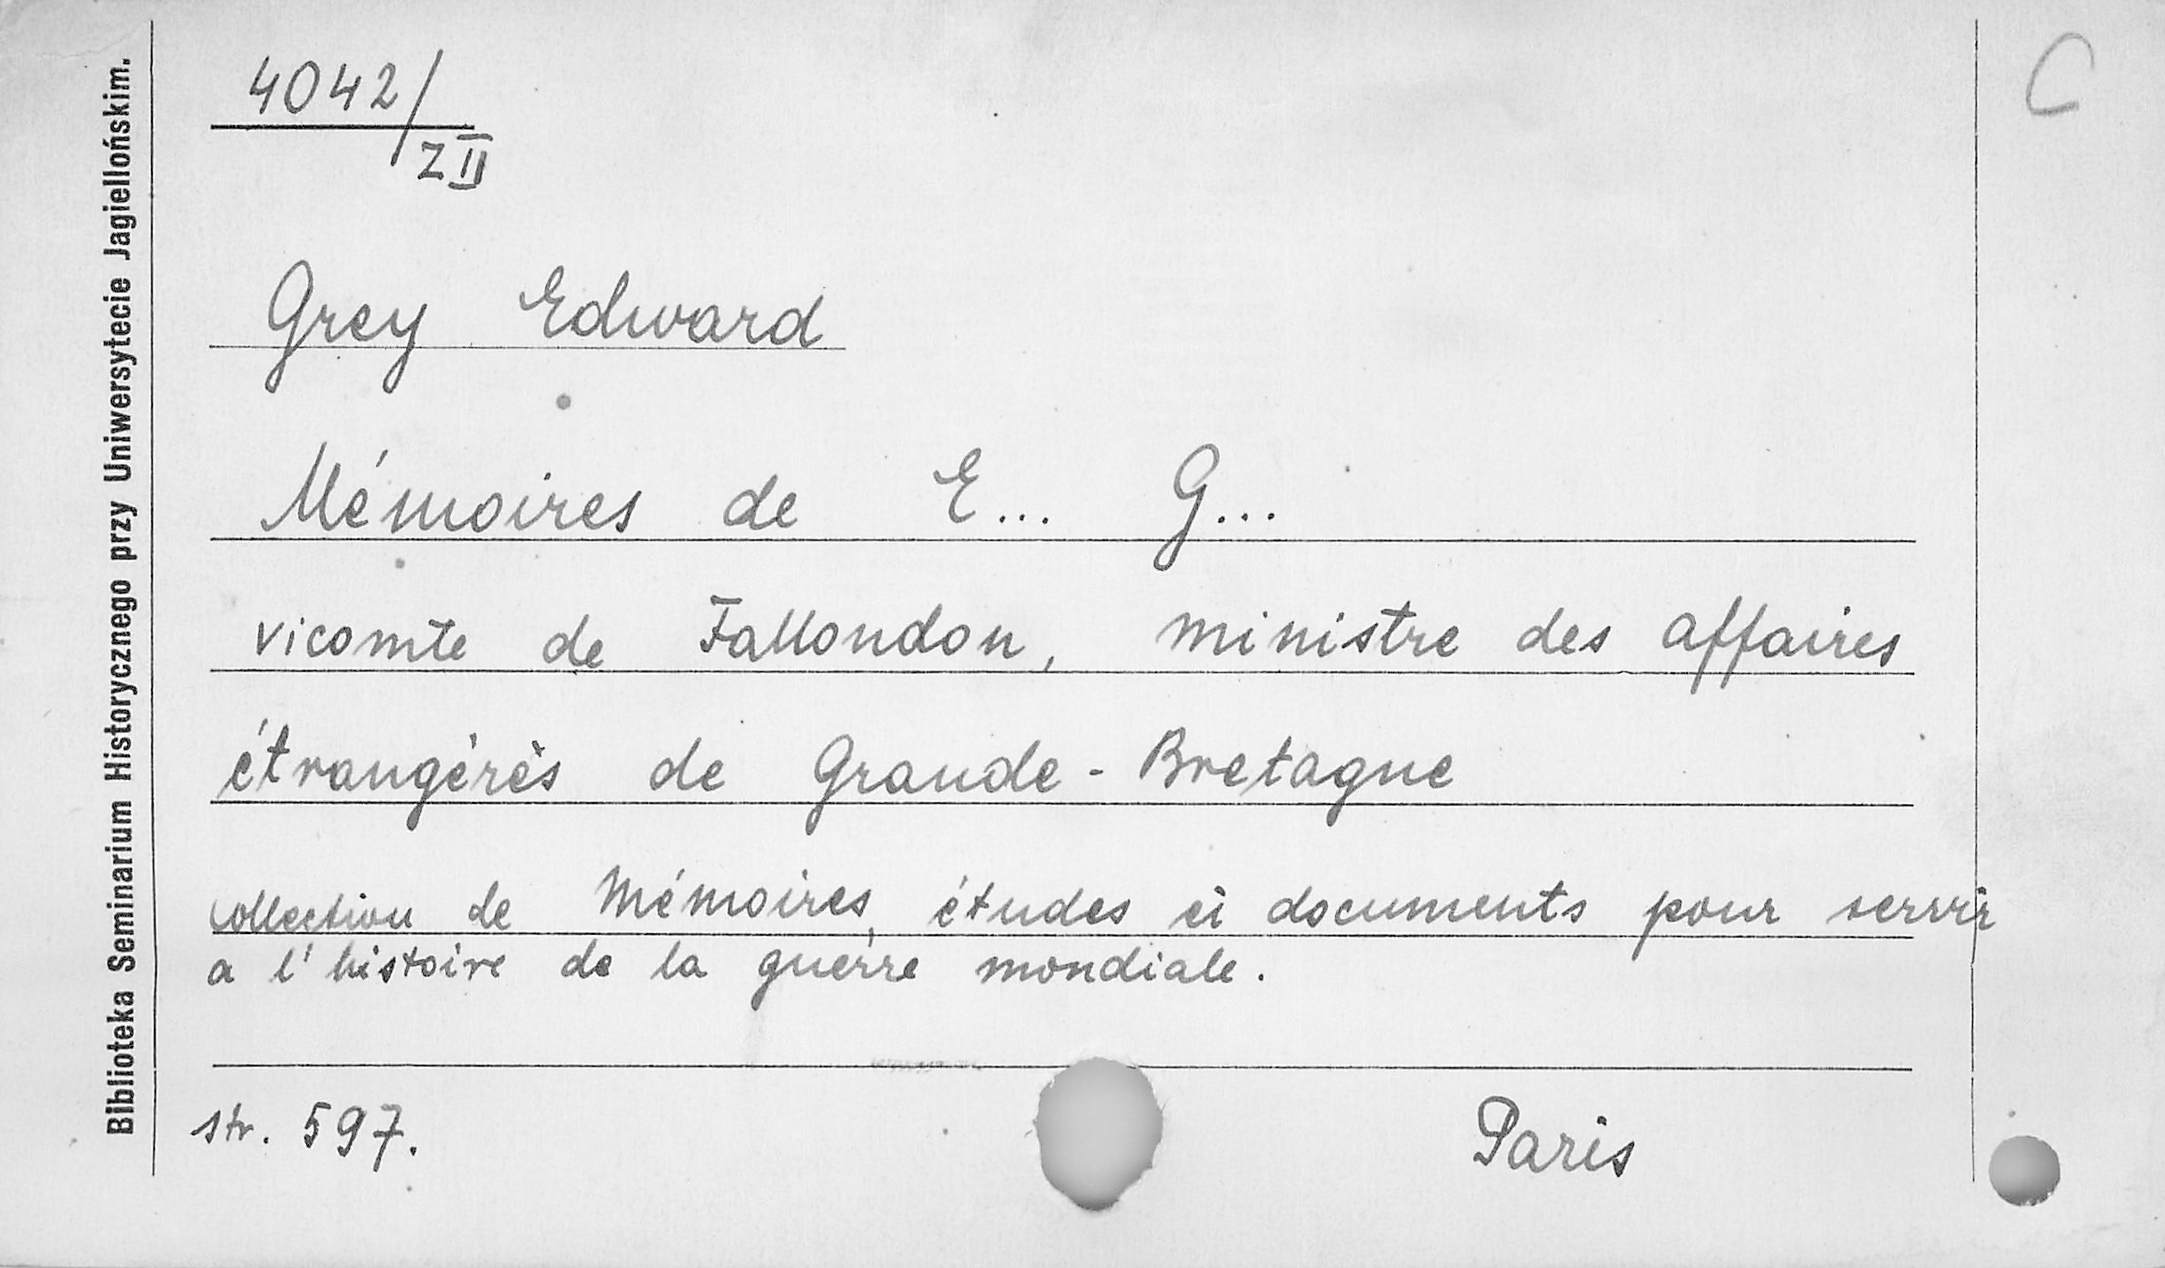 Biblioteka Seminarium Historycznego przy Uniwersytecie Jagiellońskim.
C
4042/
Z II
Grey Edward
Mémoires de E... G...
vicomte de Fallondon, ministre des affaires
étrangérès de Grande-Bretagne
collection de Mémoires, études ei documents pour servir
a l'histoire de la guerre mondiale.
str. 597.
Paris